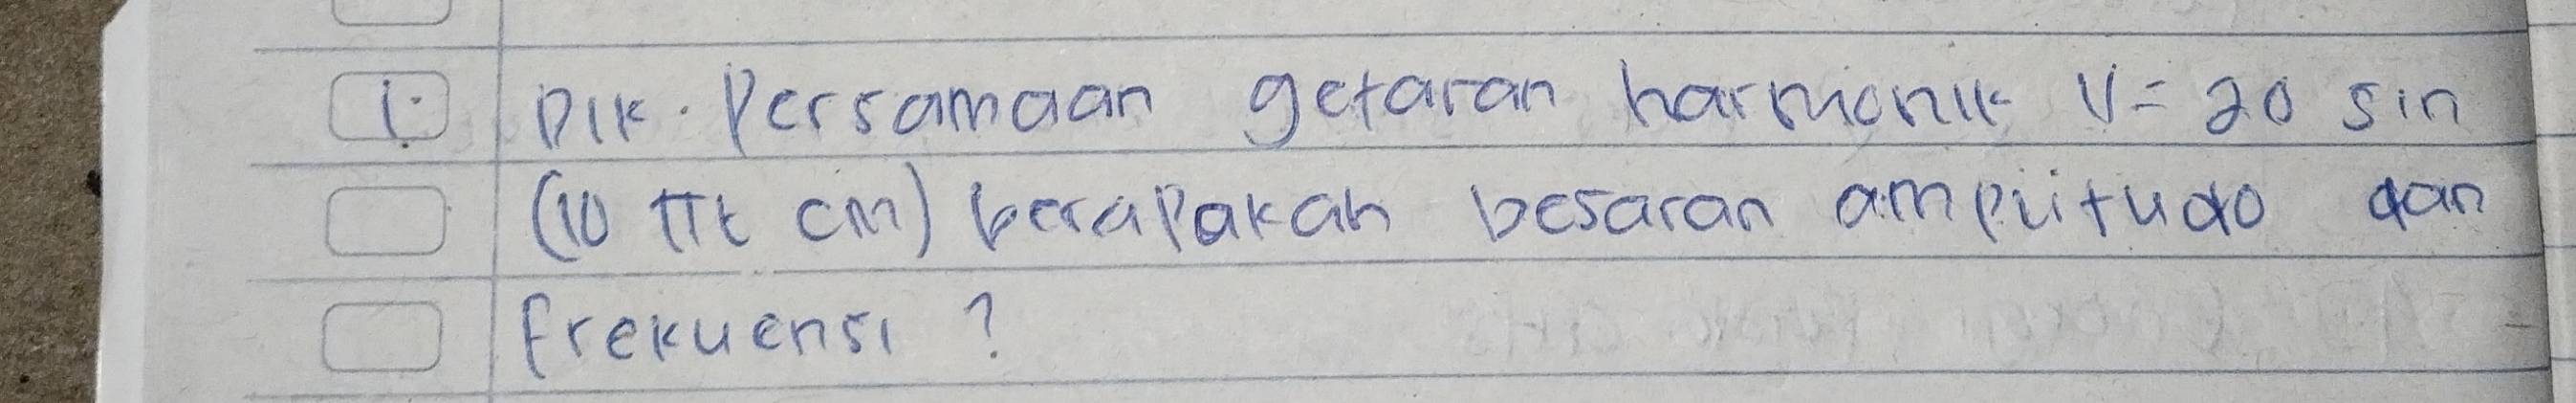 1. Dik. Persamaan getaran harmonik V = 20 sin
(10 πt cm) berapakah besaran amplitudo dan
frekuensi ?